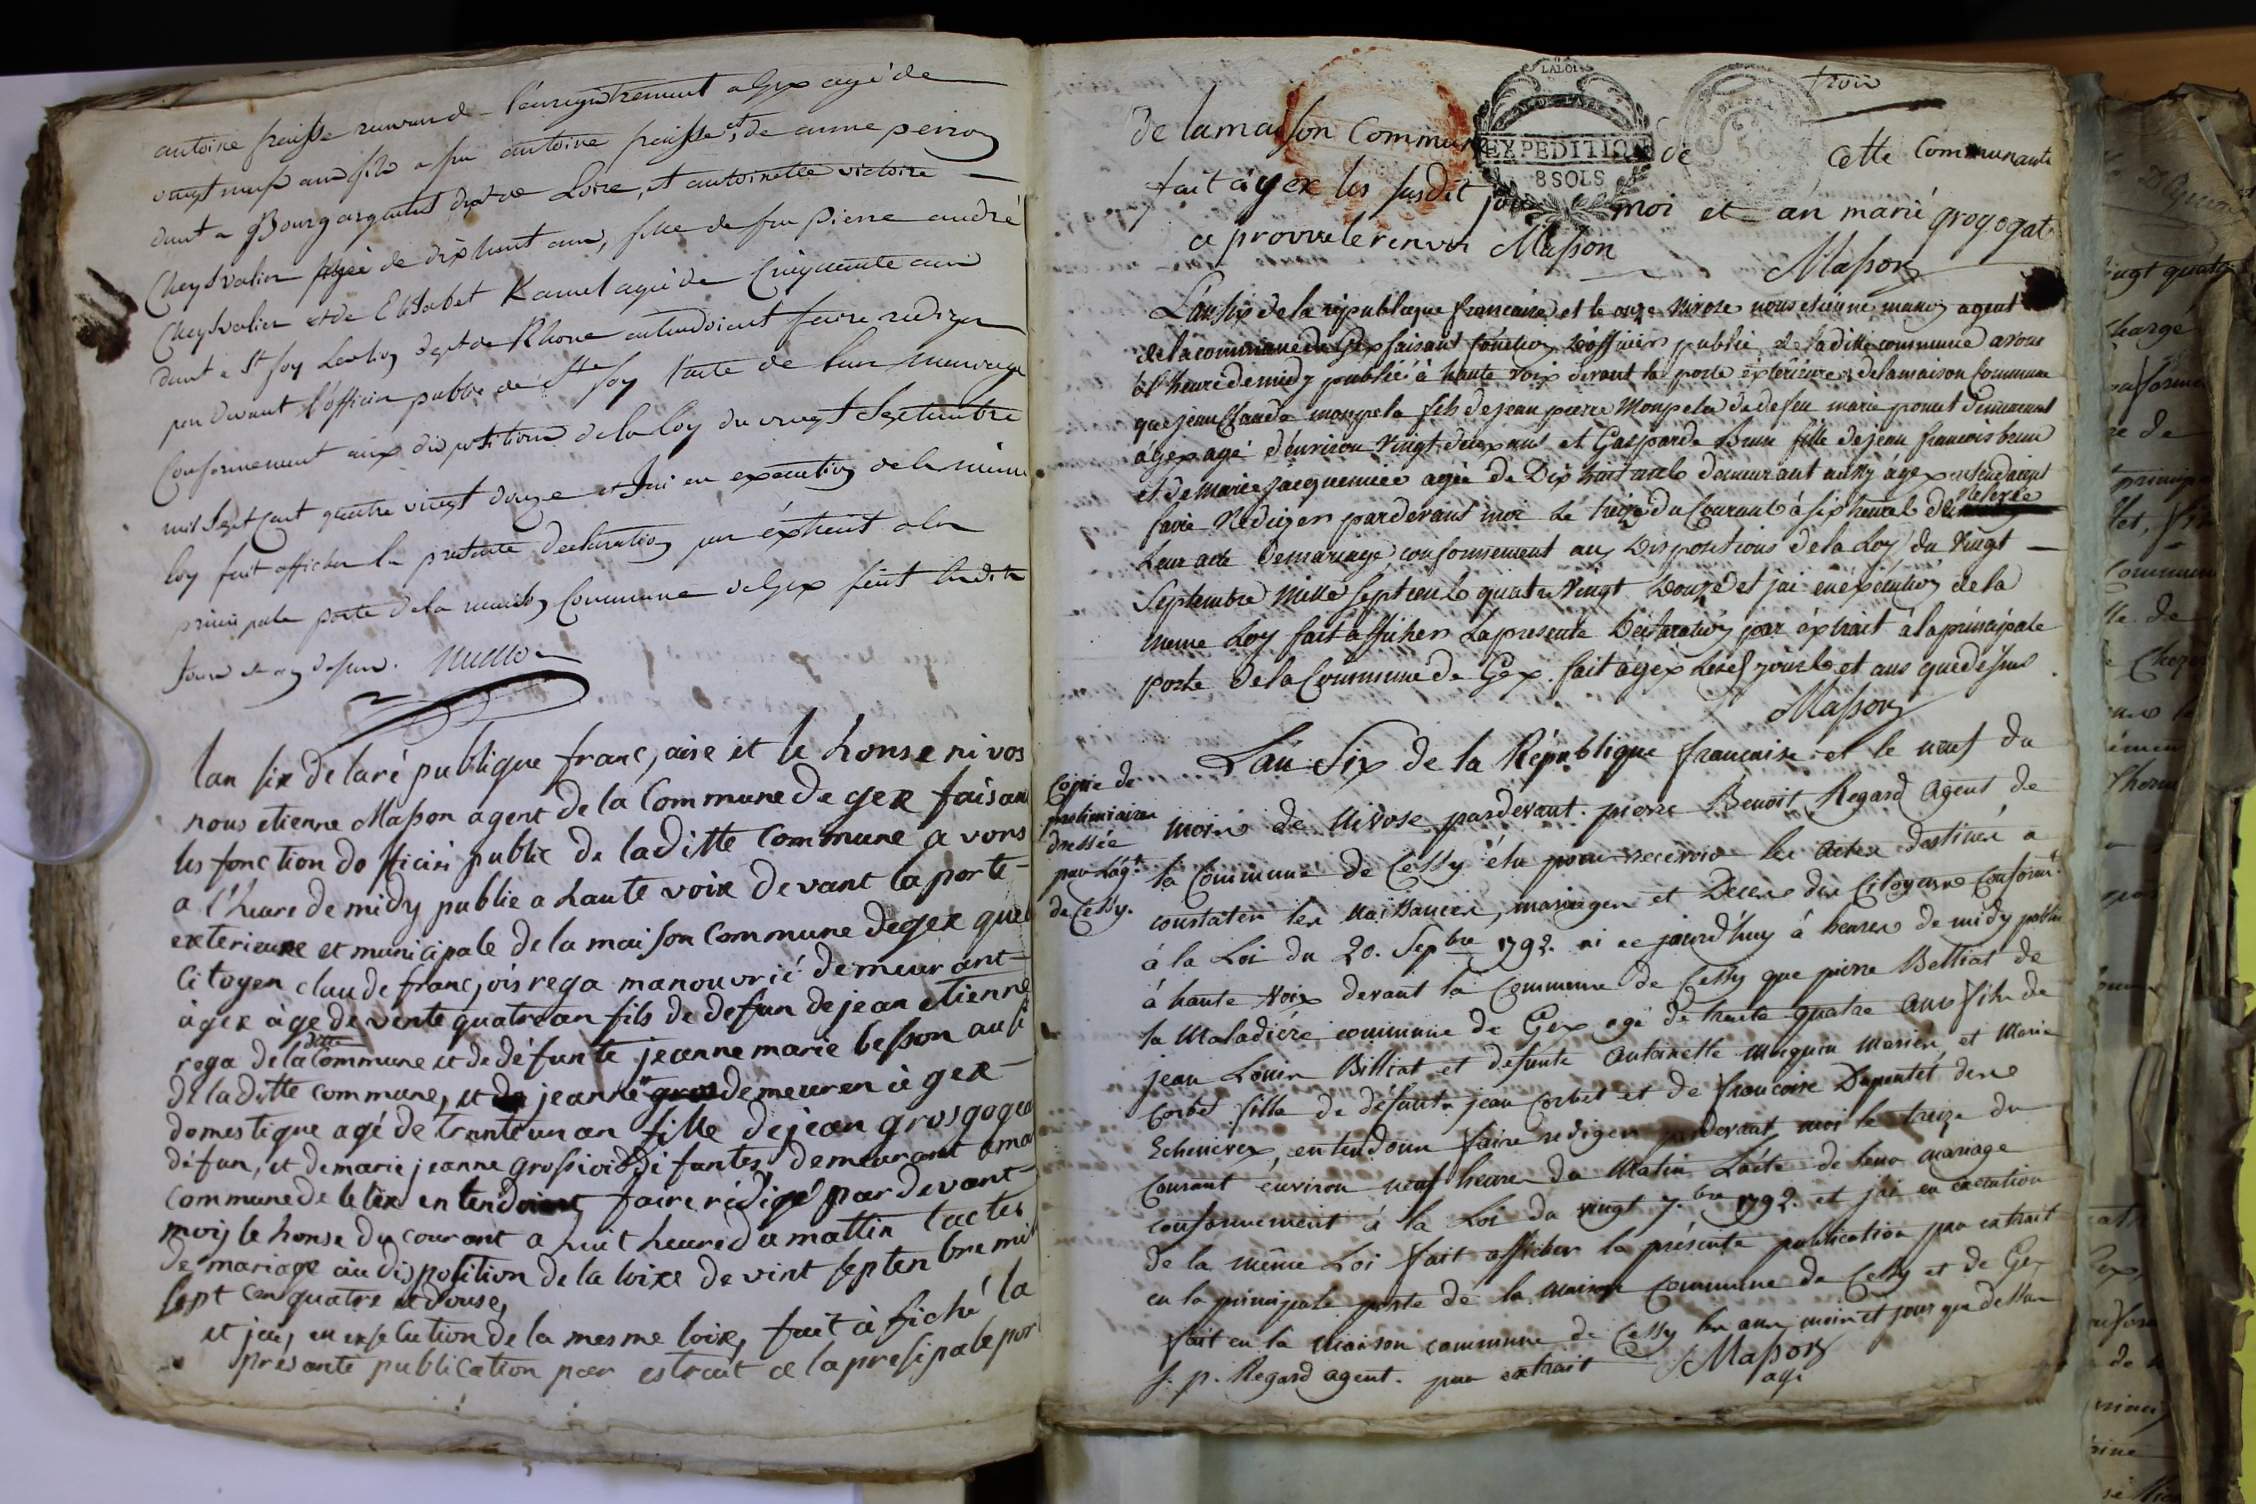 antoine fraisse receveur de l'enregistrement a Gex agé de
vingt neuf ans fils a feu antoine fraisse et de anne peiron
dmt a Bourg argental dept de Loire, et antoinette victoire
Cheysvalier agée de dix huit ans, fille de feu pierre andré
Cheysvalier et de Elisabet Kamel agée de Cinquante ans
dmt a St foy Leslion dept de Rhone entendoient faire rediger
par devant l'officier public de Ste foy l'acte de leur mariage
Conformement aux dispositions de la loy du vingt Septembre
mil Sept Cent quatre vingt douze et J'ai en execution de la même
loy fait afficher la presente declaration par éxtrait a la
principale porte de la maison Commune de Gex fait ledit
Jour et an desus.
lan six de la ré publique franc,aise et le honse ni vos
nous etienne Masson agent de la Commune de gex faisan
les fonction do fficiei public de la ditte commune a vons
a l'heure de midy publie a haute voix de vant la porte
exterieure et municipale de la maison commune de gex que
Citoyen claude franc,ois rega manouvrié demeurant
à gex àge de vente quatre an fils de defun de jean etienne
rega de la ditte Commune et de défunte jeanne marie besson ausi
de la ditte commune, et jeanne gros demeuren à gex
domestique agé de trante un an fille de jean grosgogea
défun, et de marie jeanne grossiord défuntes, demeurant ama
commune de lelex entendoient faire rédigé par devant
mois le honse du courant a huit heure du mattin l'actes
de mariage au disposition de la loixe de vint septenbre mil
sept cen quatre et douse,
et jai, en exsecution de la mesme loixe, fait à fiché la
présante publication par estrait a la presipale por
troix
de la maison Commune de cette Communante
fait à gex les susdit jour moi et an marié grogogat
a prouve le renvoi Masson
Masson
L'an Six de la république francaise et le onze Nivose nous etienne masson agent
de la commune de Gex faisant fonction d'officiers public de la ditte commune avons
à l'heure de midy publié à haute voix devant la porte éxterieure de la maison Commune
que jean Claude monpela fils de jean pierre Monpela et de defeu marie ponset demeurant
à Gex agé d'environ vingt deux ans et Gasparde Brun fille de jean francois brun
et de marie jacquemiée agée de Dix huit ans demeurant aussy à gex entendoient
faire Rediger pardevant moi le treize du Courant à six heures de relevée
Leur acte de mariage, conformement aux Dispositions de la Loy du Vingt
Septembre Mille Sept cents quatre Vingt Douze et jai en éxécution de la
meme Loy fait afficher La presente Déclaration par éxtrait à la principale
porte de la Commune de Gex. fait à gex les jours et ans que dessus
Masson
Copie de
preliminaires
dressée
par L'agt
de Cessy.
L'an Six de la République francaise et le neuf du
mois de Nivose pardevant pierre Benoit Regard Agent de
la Commune de Cessy élu pour recevoir les Actes destinés a
constater les Naissances, mariages et Décès des Citoyens Conformt
à la Loi du 20. Sepbre 1792. ai ce jourd'huy à heures de midy publié
à haute voix devant la Commune de Cessy que pierre Belliat de
la Maladière commune de Gex agé de trente quatre ans fils de
jean Louis Billiat et defunte Antoinette Maguin Mariés, et Marie
Corbet fille de défunt jean Corbet et de francoise Dupontet de
Echenevex, entendoient faire rediger pardevant moi le treize du
Courant environ neuf heures du Matin L'acte de leur mariage
conformement à la Loi du vingt 7.bre 1792. et j'ai en execution
de la même Loi fait afficher la présente publication par extrait
en la principale porte de la Maison Commune de Cessy et de Gex
fait en la maison commune de Cessy les ans mois et jours que dessus
f. p. Regard agent. par extrait Masson
agt
LA LOI
EXPEDITION
8 SOLS